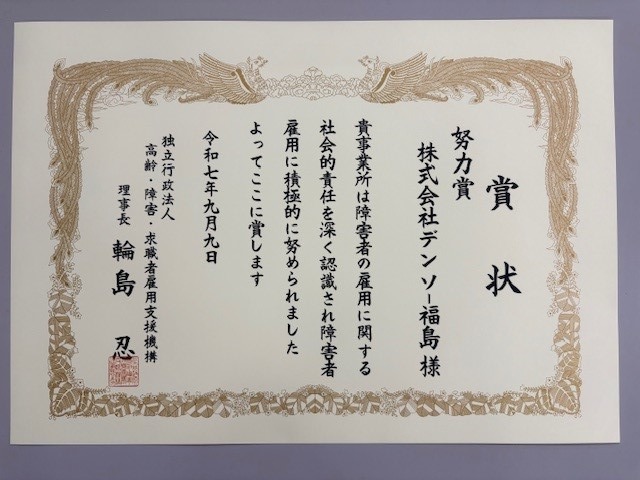 賞状
努力賞
株式会社デンソー福島様
貴事業所は障害者の雇用に関する
社会的責任を深く認識され障害者
雇用に積極的に努められました
よってここに賞します
令和七年九月九日
独立行政法人
高齢・障害・求職者雇用支援機構
理事長 輪島 忍